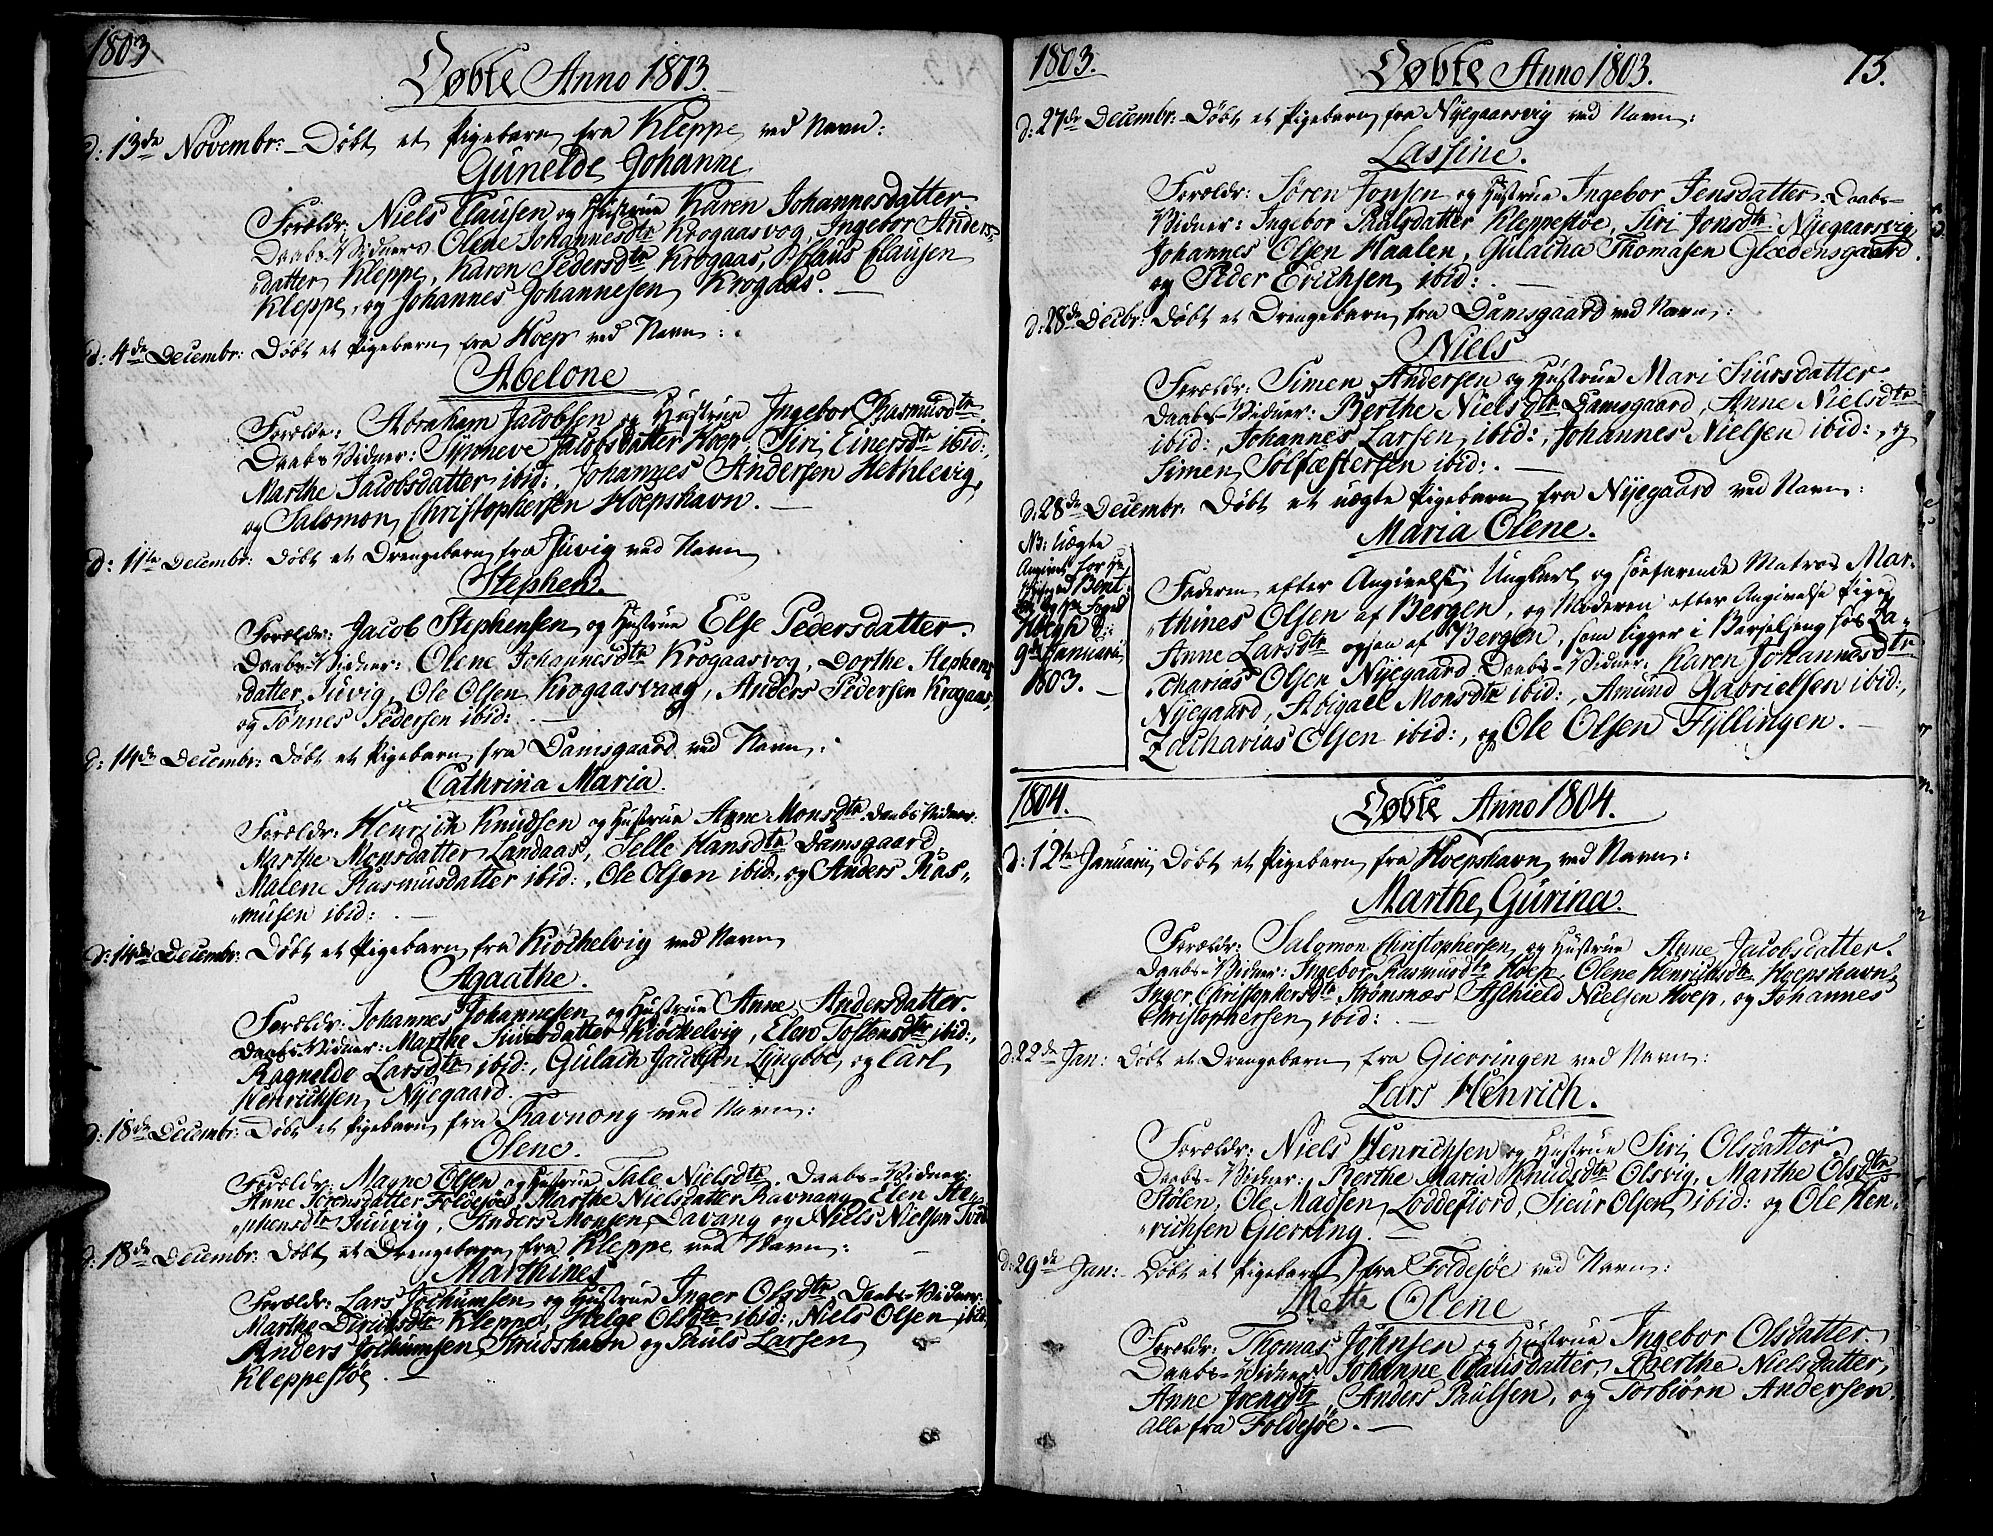 1803
Døbte Anno 1803.
d: 13de Novembr: Døbt et Pigebarn fra Kleppe ved Navn:
Gunelde Johanne
Forældr: Niels Clausen og Hustrue Karen Johannesdatter
Daabs-Vidners Olene Johannesdtr Krogaasvog, Ingebor Anders-
datter Kleppe, Karen Pedersdtr Krogaas, Claus Clausen
Kleppe, og Johannes Johannesen Krogaas.
d: 4de Decembr: Døbt et Pigebarn fra Hoep ved Navn:
Abelone
Forældr: Abraham Jacobsen og Hustrue Ingebor Rasmusdtr
Daabs-Vidner: Synneve Jacobsdatter Hoep, Siri Einersdtr ibid:,
Marthe Jacobsdatter ibid:, Johannes Andersen Hethlevig,
og Salomon Christophersen Hoepshavn.
d: 11te Decembr: Døbt et Drengebarn fra Juvig ved Navn
Stephen.
Forældr: Jacob Stephensen og Hustrue Else Pedersdatter.
Daabs-Vidner: Olene Johannesdtr Krogaasvog, Dorthe Stephens
datter Juvig, Ole Olsen Krogaasvaag, Anders Pedersen Krogaas,
og Tønnes Pedersen ibid:
d: 14de Decembr: Døbt et Pigebarn fra Damsgaard ved Navn:
Cathrina Maria.
Forældr: Henrich Knudsen og Hustrue Anne Monsdtr. Daabs-Vidner
Marthe Monsdatter Landaas, Selle Hansdtr Damsgaard,
Malene Rasmusdatter ibid:, Ole Olsen ibid:, og Anders Ras-
musen ibid:
d: 14de Decembr: Døbt et Pigebarn fra Kiøchelvig ved Navn
Agaathe.
Forældr: Johannes Johannesen og Hustrue Anne Andersdatter.
Daabs-Vidner: Marthe Siursdatter Kiøchelvig, Elen Tostensdtr ibid:,
Ragnelde Larsdtr ibid:, Gulach Jacobsen Lyngboe, og Carl
Henrichsen Nyegaard.
d: 18de Decembr: Døbt et Pigebarn fra Ravnong ved Navn:
Olene.
Forældr: Magne Olsen og Hustrue Tale Nielsdtr. Daabs-Vidner:
Anne Joensdatter Foldesøe, Marthe Nielsdatter Ravnang, Elen Ste-
phensdtr Juuvig, Anders Monsen Davang og Niels Nielsen
d: 18de Decembr: Døbt et Drengebarn fra Kleppe ved Navn:
Marthines
Forældr: Lars Jochumsen og Hustrue Inger Olsdtr. Daabs-Vidner:
Marthe Dirichsdtr Kleppe, Helge Olsdtr ibid:, Niels Olsen ibid:
Anders Jochumsen Strudshavn og Pauls Larsen
Kleppestøe.
1803.
Døbte Anno 1803.
13.
d: 27de Decembr: Døbt et Pigebarn fra Nyegaarsvig ved Navn:
Lassine.
Forældr: Søren Jonsen og Hustrue Ingebor Jensdatter. Daabs-
Vidner: Ingebor Paulsdatter Kleppestøe, Siri Jonsdtr Nyegaarsvig,
Johannes Olsen Haalen, Gulacha Thomasen Glædensgaard
og Peder Erichsen ibid:
d: 28de Decbr: Døbt et Drengebarn fra Damsgaard ved Navn:
Niels
Forældr: Simen Andersen og Hustrue Mari Siursdatter
Daabs-Vidner: Berthe Nielsdtr Damsgaard, Anne Nielsdtr
ibid:, Johannes Larsen ibid:, Johannes Nielsen ibid:, og
Simen Solfæstersen ibid:.
d: 28de Decembr: Døbt et uægte Pigebarn fra Nyegaard ved Navn:
Maria Olene.
NB: Uægte
Angivet for
9de Januarii
1803.
Faderen efter Angivelse Ungkarl og søefarende Matros Mar-
thines Olsen af Bergen, og Moderen efter Angivelse Pige
Anne Larsdtr ogsaa af Bergen, som ligger i Barselseng hos Za-
charias Olsen Nyegaard. Daabs-Vidner: Karen Johannesdtr
Nyegaard, Abigael Monsdtr ibid:, Amund Gabrielsen ibid:,
Zacharias Olsen ibid:, og Ole Olsen Fyllingen.
1804.
Døbte Anno 1804.
d: 12te Januarii Døbt et Pigebarn fra Hoepshavn ved Navn:
Marthe Gurina.
Forældr: Salomon Christophersen og Hustrue Anne Jacobsdatter.
Daabs-Vidner: Ingebor Rasmusdtr Hoep, Olene Henrichsdtr Hoepshavn,
Inger Christophersdtr Strømsnæs Aschield Nielsen Hoep, og Johannes
Christophersen ibid:
d: 22de Jan: Døbt et Drengebarn fra Gierringen ved Navn:
Lars Henrich.
Forældr: Niels Henrichsen og Hustrue Siri Olsdatter
Daabs-Vidner: Berthe Maria Knudsdtr Olsvig, Marthe Olsdtr
Stølen, Ole Madsen Loddefiord, Sieur Olsen ibid: og Ole Hen-
richsen Gierring.
d: 29de Jan: Døbt et Pigebarn fra Foldesøe ved Navn:
Mette Olene
Forældr: Thomas Johnsen og Hustrue Ingebor Olsdatter.
Daabs-Vidner: Johanne Clausdatter, Berthe Nielsdatter,
Anne Joensdtr, Anders Paulsen, og Torbiørn Andersen
alle fra Foldesøe.